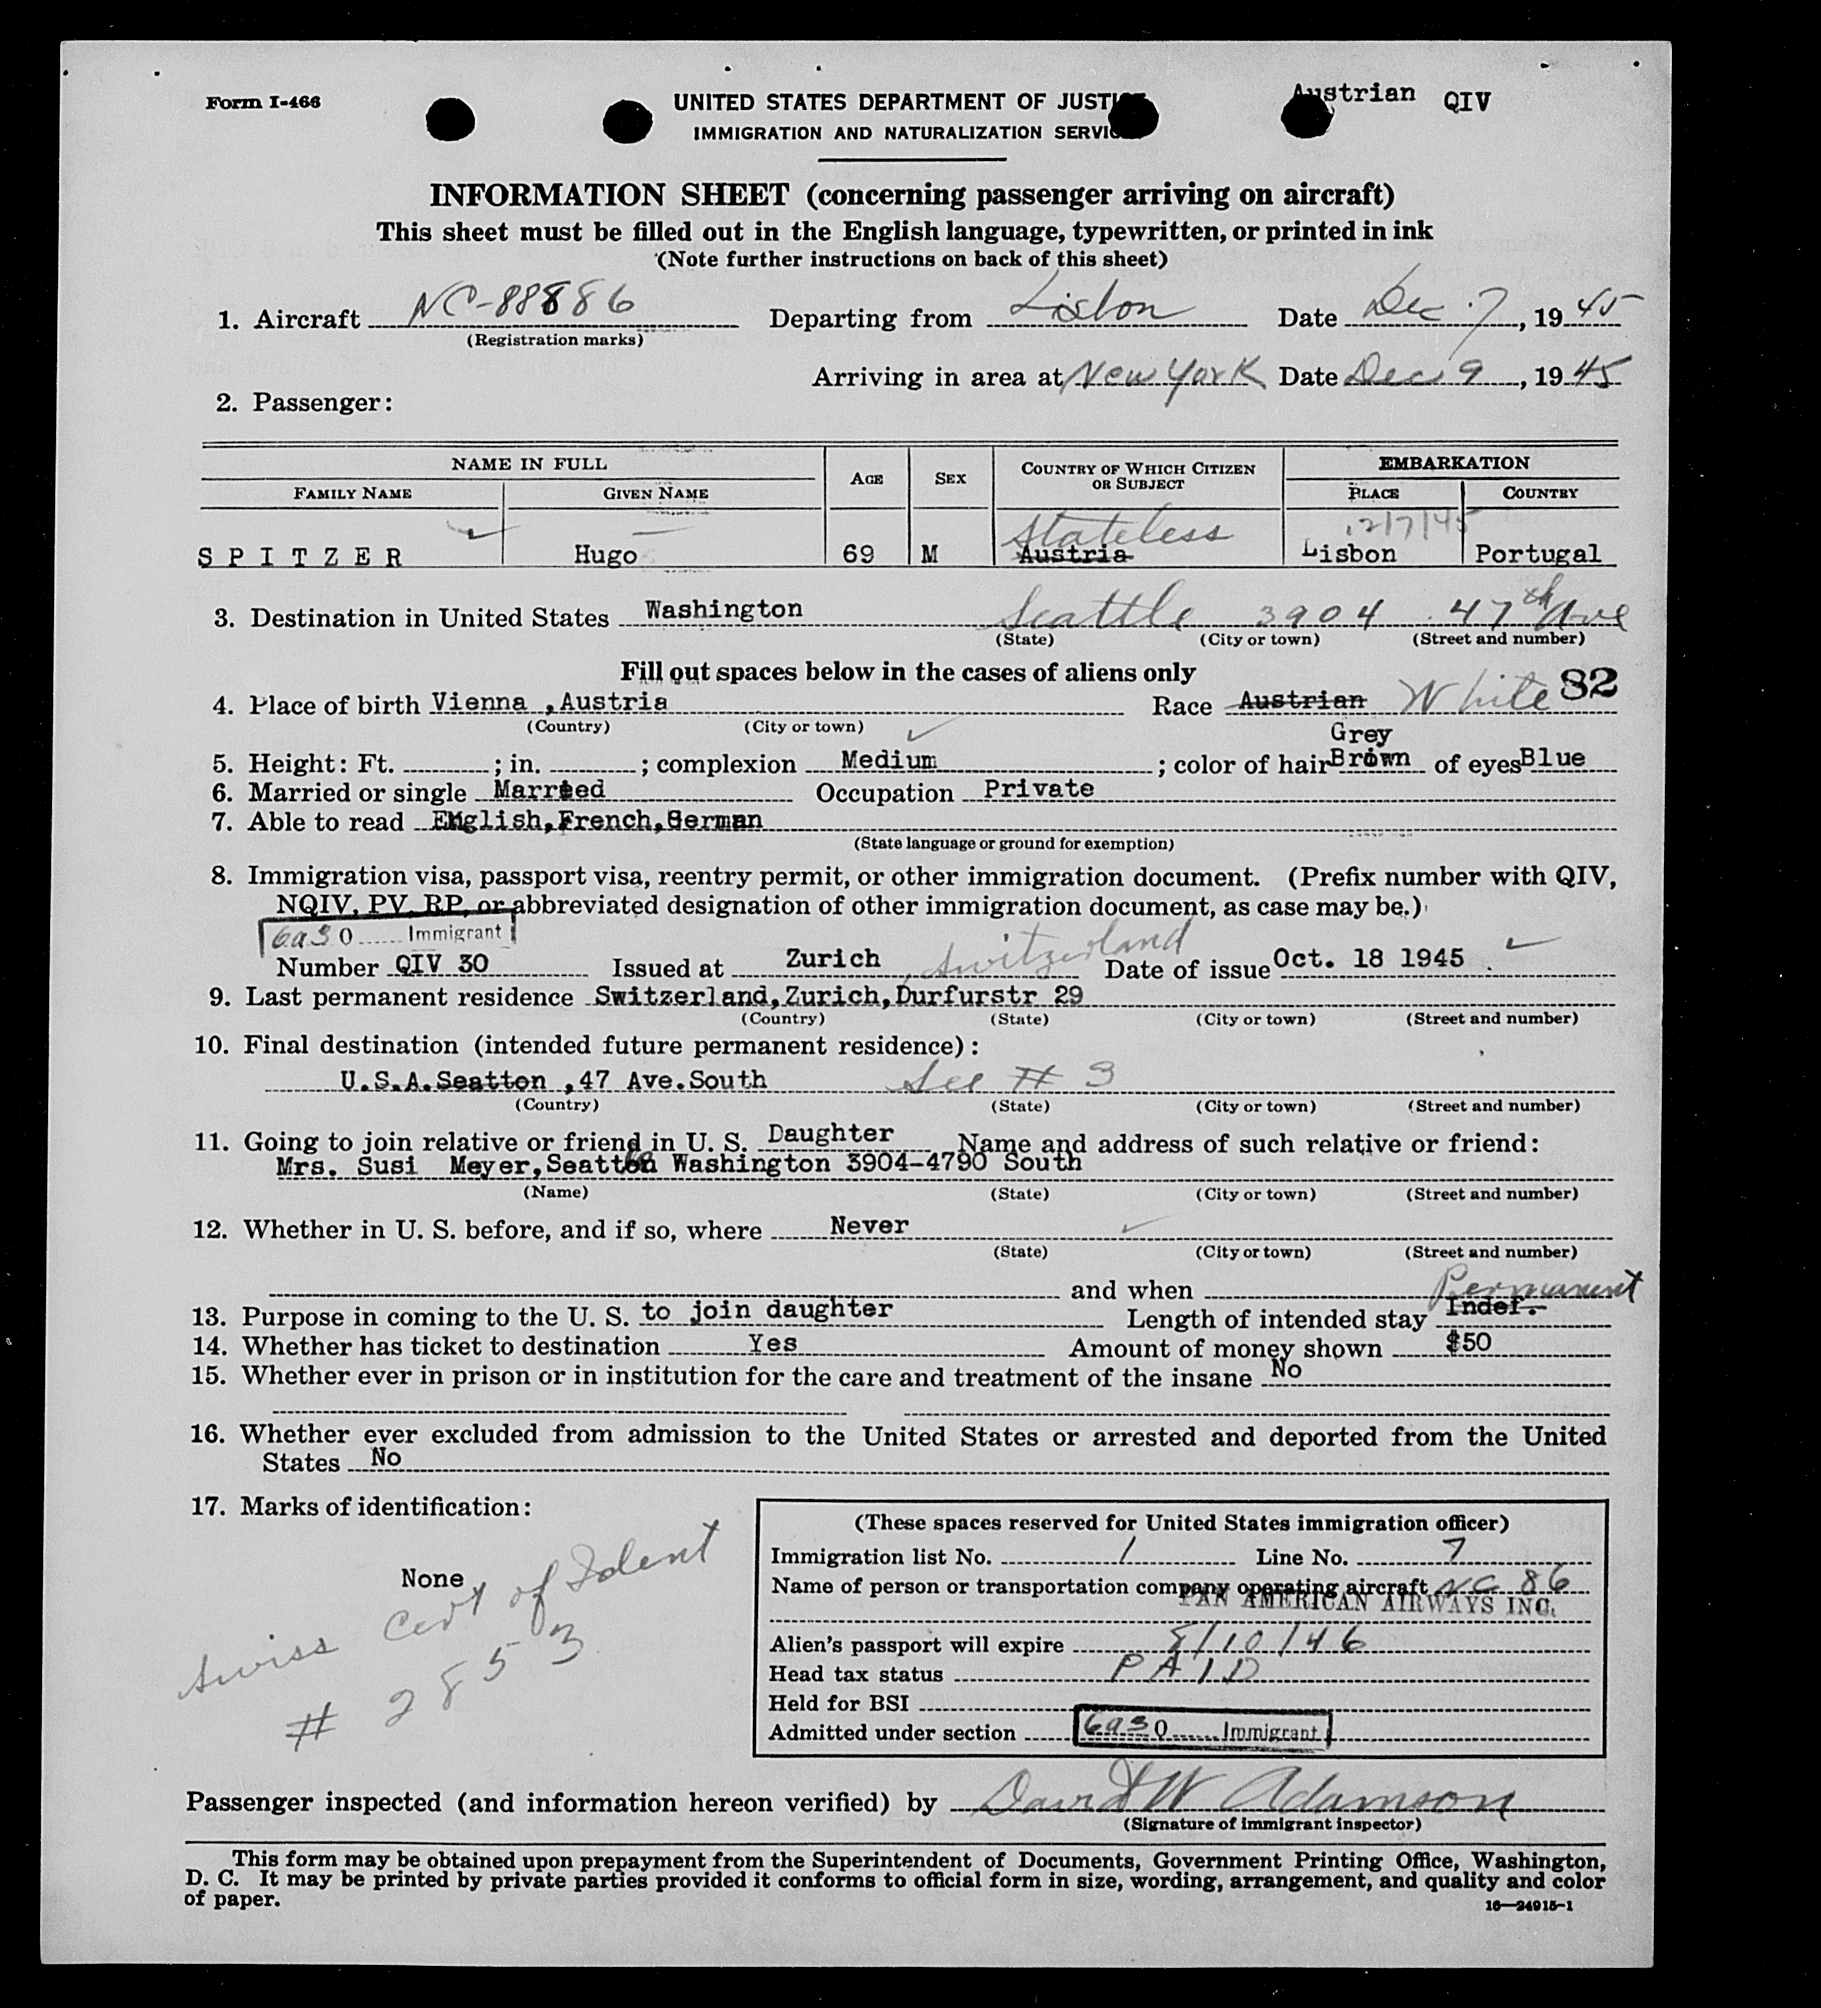 Form I-466
Austrian QIV
UNITED STATES DEPARTMENT OF JUSTICE
IMMIGRATION AND NATURALIZATION SERVICE
INFORMATION SHEET (concerning passenger arriving on aircraft)
This sheet must be filled out in the English language, typewritten, or printed in ink
(Note further instructions on back of this sheet)
1. Aircraft NC-88886 Departing from Lisbon Date Dec 7, 1945
(Registration marks)
Arriving in area at New York Date Dec 9, 1945
2. Passenger:
NAME IN FULL AGE SEX COUNTRY OF WHICH CITIZEN OR SUBJECT EMBARKATION
FAMILY NAME GIVEN NAME PLACE COUNTRY
Stateless 12/7/45
SPITZER Hugo 69 M Austria Lisbon Portugal
3. Destination in United States Washington Seattle 3904 47th Ave
(State) (City or town) (Street and number)
Fill out spaces below in the cases of aliens only
4. Place of birth Vienna ,Austria Race Austrian White 82
(Country) (City or town)
Grey
5. Height: Ft. ; in. ; complexion Medium ; color of hair Brown of eyes Blue
6. Married or single Married Occupation Private
7. Able to read English,French,German
(State language or ground for exemption)
8. Immigration visa, passport visa, reentry permit, or other immigration document. (Prefix number with QIV,
NQIV, PV, RP, or abbreviated designation of other immigration document, as case may be.)
6a3 0 Immigrant
Number QIV 30 Issued at Zurich, Switzerland Date of issue Oct. 18 1945
9. Last permanent residence Switzerland,Zurich,Durfurstr 29
(Country) (State) (City or town) (Street and number)
10. Final destination (intended future permanent residence):
U.S.A.Seatton ,47 Ave.South See # 3
(Country) (State) (City or town) (Street and number)
11. Going to join relative or friend in U. S. Daughter Name and address of such relative or friend:
Mrs. Susi Meyer, Washington 3904-4790 South
(Name) (State) (City or town) (Street and number)
12. Whether in U. S. before, and if so, where Never
(State) (City or town) (Street and number)
and when
Permanent
13. Purpose in coming to the U. S. to join daughter Length of intended stay Indef.
14. Whether has ticket to destination Yes Amount of money shown $50
15. Whether ever in prison or in institution for the care and treatment of the insane No
16. Whether ever excluded from admission to the United States or arrested and deported from the United
States No
17. Marks of identification:
None
Swiss Cert of Ident
# 2853
(These spaces reserved for United States immigration officer)
Immigration list No. 1 Line No. 7
Name of person or transportation company operating aircraft NC 86
PAN AMERICAN AIRWAYS INC.
Alien's passport will expire 8/10/46
Head tax status PAID
Held for BSI
Admitted under section 6a3 0 Immigrant
Passenger inspected (and information hereon verified) by David W Adamson
(Signature of immigrant inspector)
This form may be obtained upon prepayment from the Superintendent of Documents, Government Printing Office, Washington,
D. C. It may be printed by private parties provided it conforms to official form in size, wording, arrangement, and quality and color
of paper.
16—24915-1